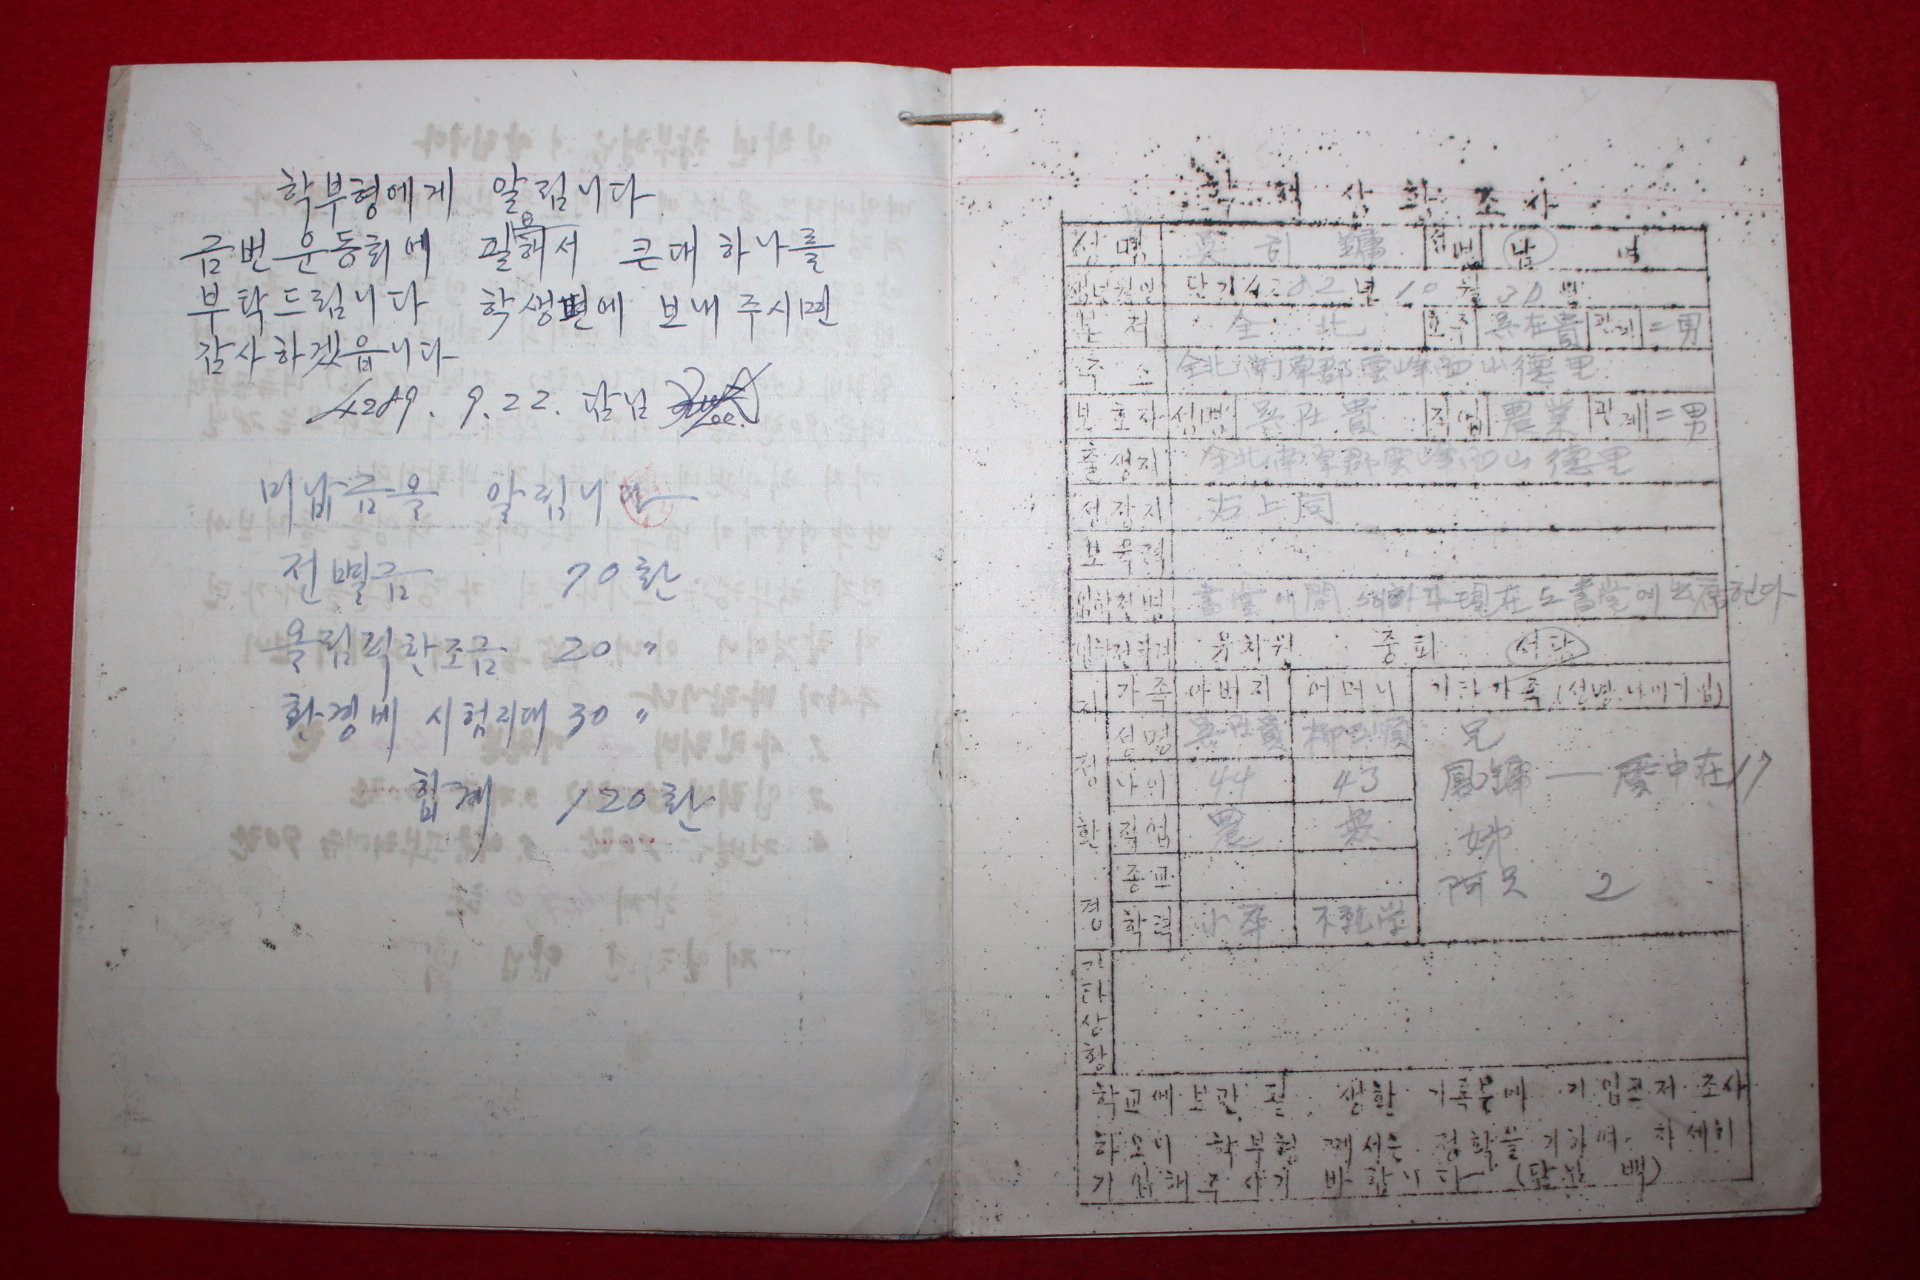 학부형에게 알립니다
금번 운동회에 필요해서 큰대 하나를
부탁드립니다 학생편에 보내 주시면
감사하겠읍니다
4289. 9. 22. 담님
미납금을 알립니다
전별금 70환
올림픽한조금 20 〃
환경비 시험지대 30 〃
합계 120환
학적상화조사
성명 吳 鏞 성별 남 여
생년월일 단기4282년 10월 30일
본적 全北 호주 吳在貴 관계 二男
주소 全北 南原郡 雲峰面 山德里
보호자 성명 吳在貴 직업 農業 관계 二男
출생지 全北 南原郡 雲峰面 山德里
성장지 右上同
보육력
입학전 유치원 중퇴 서당
가족 아버지 어머니 기타가족(성명.나이기입)
성명 吳在貴 柳 順 兄
나이 44 43 鳳鏞 — 在 17
직업 農 農 姊
종교 2
학력 小卒
가정환경
기타상황
학교에 보관 된 생활 기록부에 기입코저 조사
하오니 학부형께서는 정확을 기하며 자세히
기입해주시기 바랍니다 (담님 백)